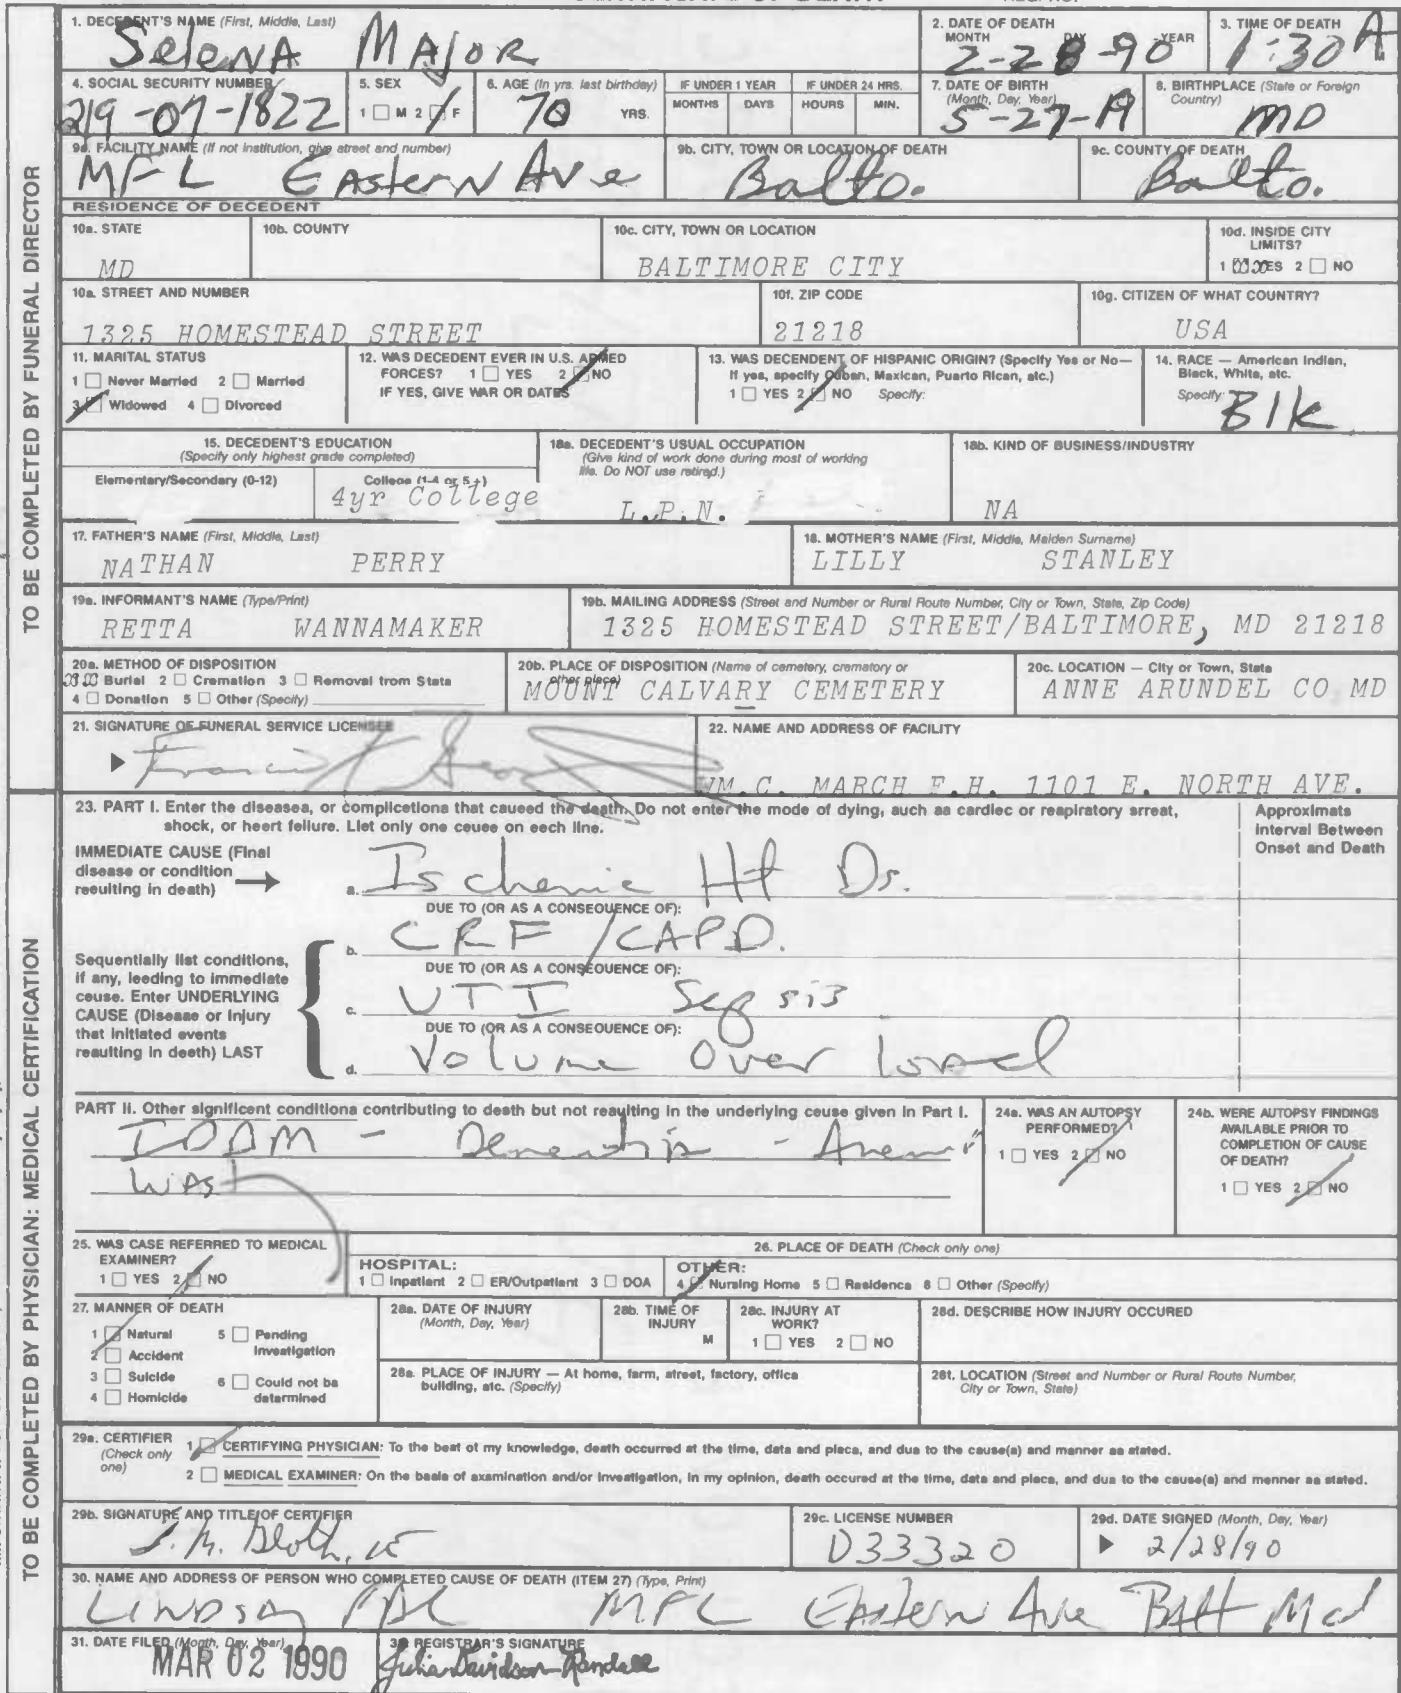 1. DECEDENT'S NAME (First, Middle, Last)
Selena Major
2. DATE OF DEATH
MONTH DAY YEAR
2-28-90
3. TIME OF DEATH
1:30 A M
4. SOCIAL SECURITY NUMBER
219-07-1822
5. SEX
1 M 2 F
6. AGE (In yrs. last birthday)
70 YRS.
IF UNDER 1 YEAR
MONTHS DAYS
IF UNDER 24 HRS.
HOURS MIN.
7. DATE OF BIRTH
(Month, Day, Year)
5-27-19
8. BIRTHPLACE (State or Foreign
Country)
MD
9a. FACILITY NAME (If not institution, give street and number)
MFL Eastern Ave
9b. CITY, TOWN OR LOCATION OF DEATH
Balto.
9c. COUNTY OF DEATH
Balto.
RESIDENCE OF DECEDENT
10a. STATE
MD
10b. COUNTY
10c. CITY, TOWN OR LOCATION
BALTIMORE CITY
10d. INSIDE CITY
LIMITS?
1 YES 2 NO
10e. STREET AND NUMBER
1325 HOMESTEAD STREET
10f. ZIP CODE
21218
10g. CITIZEN OF WHAT COUNTRY?
USA
11. MARITAL STATUS
1 Never Married 2 Married
3 Widowed 4 Divorced
12. WAS DECEDENT EVER IN U.S. ARMED
FORCES? 1 YES 2 NO
IF YES, GIVE WAR OR DATES
13. WAS DECENDENT OF HISPANIC ORIGIN? (Specify Yes or No—
If yes, specify Cuban, Mexican, Puerto Rican, etc.)
1 YES 2 NO Specify:
14. RACE — American Indian,
Black, White, etc.
Specify:
Blk
15. DECEDENT'S EDUCATION
(Specify only highest grade completed)
Elementary/Secondary (0-12)
College (1-4 or 5+)
4yr College
16a. DECEDENT'S USUAL OCCUPATION
(Give kind of work done during most of working
life. Do NOT use retired.)
L.P.N.
16b. KIND OF BUSINESS/INDUSTRY
NA
17. FATHER'S NAME (First, Middle, Last)
NATHAN PERRY
18. MOTHER'S NAME (First, Middle, Maiden Surname)
LILLY STANLEY
19a. INFORMANT'S NAME (Type/Print)
RETTA WANNAMAKER
19b. MAILING ADDRESS (Street and Number or Rural Route Number, City or Town, State, Zip Code)
1325 HOMESTEAD STREET/BALTIMORE, MD 21218
20a. METHOD OF DISPOSITION
Burial 2 Cremation 3 Removal from State
4 Donation 5 Other (Specify)
20b. PLACE OF DISPOSITION (Name of cemetery, crematory or
other place)
MOUNT CALVARY CEMETERY
20c. LOCATION — City or Town, State
ANNE ARUNDEL CO MD
21. SIGNATURE OF FUNERAL SERVICE LICENSEE
22. NAME AND ADDRESS OF FACILITY
WM.C. MARCH F.H. 1101 E. NORTH AVE.
23. PART I. Enter the diseases, or complications that caused the death. Do not enter the mode of dying, such as cardiac or respiratory arrest,
shock, or heart failure. List only one cause on each line.
Approximate
Interval Between
Onset and Death
IMMEDIATE CAUSE (Final
disease or condition
resulting in death)
a. Ischemic Ht Ds.
DUE TO (OR AS A CONSEQUENCE OF):
b. CRF / CAPD.
DUE TO (OR AS A CONSEQUENCE OF):
c. UTI Sepsis
DUE TO (OR AS A CONSEQUENCE OF):
d. Volume Over load
Sequentially list conditions,
if any, leading to immediate
cause. Enter UNDERLYING
CAUSE (Disease or injury
that initiated events
resulting in death) LAST
PART II. Other significant conditions contributing to death but not resulting in the underlying cause given in Part I.
IDDM - Dementia - Anemia
24a. WAS AN AUTOPSY
PERFORMED?
1 YES 2 NO
24b. WERE AUTOPSY FINDINGS
AVAILABLE PRIOR TO
COMPLETION OF CAUSE
OF DEATH?
1 YES 2 NO
25. WAS CASE REFERRED TO MEDICAL
EXAMINER?
1 YES 2 NO
26. PLACE OF DEATH (Check only one)
HOSPITAL:
1 Inpatient 2 ER/Outpatient 3 DOA
OTHER:
4 Nursing Home 5 Residence 6 Other (Specify)
27. MANNER OF DEATH
1 Natural 5 Pending
Investigation
2 Accident
3 Suicide 6 Could not be
determined
4 Homicide
28a. DATE OF INJURY
(Month, Day, Year)
28b. TIME OF
INJURY
M
28c. INJURY AT
WORK?
1 YES 2 NO
28d. DESCRIBE HOW INJURY OCCURED
28e. PLACE OF INJURY — At home, farm, street, factory, office
building, etc. (Specify)
28f. LOCATION (Street and Number or Rural Route Number,
City or Town, State)
29a. CERTIFIER
(Check only
one)
1 CERTIFYING PHYSICIAN: To the best of my knowledge, death occurred at the time, date and place, and due to the cause(s) and manner as stated.
2 MEDICAL EXAMINER: On the basis of examination and/or investigation, in my opinion, death occured at the time, date and place, and due to the cause(s) and manner as stated.
29b. SIGNATURE AND TITLE OF CERTIFIER
29c. LICENSE NUMBER
D33320
29d. DATE SIGNED (Month, Day, Year)
2/28/90
30. NAME AND ADDRESS OF PERSON WHO COMPLETED CAUSE OF DEATH (ITEM 27) (Type, Print)
MFL Eastern Ave Balt Md
31. DATE FILED (Month, Day, Year)
MAR 02 1990
32. REGISTRAR'S SIGNATURE
Julia Davidson-Randall
TO BE COMPLETED BY FUNERAL DIRECTOR
TO BE COMPLETED BY PHYSICIAN: MEDICAL CERTIFICATION